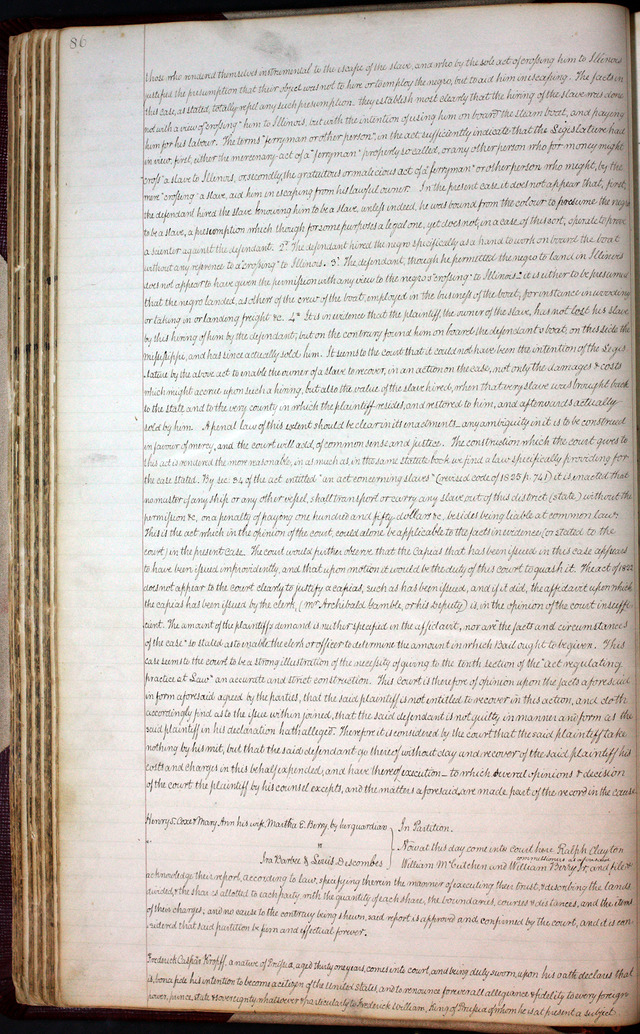 86
those who rendered themselves instrumental to the escape of the slave, and who by the sole act of crossing him to Illinois
justified the presumption that their object was not to hire or to employ the negro, but to aid him in escaping. The facts in
this case, as stated, totally repel any such presumption. they establish most clearly that the hiring of the slave was done
not with a view of "crossing" him to Illinois, but with the intention of using him on board the steam boat, and paying
him for his labour. The terms "ferryman or other person", in the act sufficiently indicate that the Legislature had
in view, first, either the mercenary act of a "ferryman" properly so called, or any other person who for money might
"cross" a slave to Illinois, or secondly, the gratuitous or malicious act of a "ferryman" or other person who might, by the
mere "crossing" a slave, aid him in escaping from his lawful owner. In the present case it does not appear that, first,
the defendant hired the slave knowing him to be a slave, unless indeed, he was bound from the colour to presume the negro
to be a slave, a presumption which though for some purposes a legal one, yet does not, in a case of this sort, operate to prove
a scienter against the defendant. 2d. The defendant hired the negro specifically as a hand to work on board the boat
without any reference to a "crossing" to Illinois. 3d. The defendant, though he permitted the negro to land in Illinois
does not appear to have given the permission with any view to the negro's "crossing" to Illinois. it is either to be presumed
that the negro landed, as others of the crew of the boat, employed in the business of the boat, for instance in wooding
or taking in or landing freight &c. 4th. It is in evidence that the plaintiff, the owner of the slave, has not lost his slave
by this hiring of him by the defendant, but on the contrary found him on board the defendant's boat, on this side the
Mississippi, and has since actually sold him. It seems to the court that it could not have been the intention of the Legis
lature by the above act to enable the owner of a slave to recover, in an action on the case, not only the damages & costs
which might accrue upon such a hiring, but also the value of the slave hired, when that very slave was brought back
to the state and to the very county in which the plaintiff resides, and restored to him, and afterwards actually
sold by him. A penal law of this extent should be clear in its enactments any ambiguity in it is to be construed
in favour of mercy, and the court will add, of common sense and justice. The construction which the court gives to
this act is rendered the more reasonable, in as much as in the same statute book we find a law specifically providing for
the case stated. By sec. 34 of the act entitled "an act concerning slaves" (revised code of 1825 p. 747) it is enacted that
no master of any ship or any other vessel, shall transport or carry any slave out of this district (state) without the
permission &c, on a penalty of paying one hundred and fifty dollars &c, besides being liable at common law.
This is the act which in the opinion of the court, could alone, be applicable to the facts in evidence (or stated to the
court) in the present case. The court would further observe that the Capias that has been issued in this case appears
to have been issued improvidently, and that upon motion it would be the duty of this court to quash it. The act of 1822
does not appear to the court clearly to justify a capias, such as has been issued, and if it did, the affidavit upon which
the capias has been issued by the clerk, (Mr. Archibald Gamble, or his Deputy) is, in the opinion of the court insuffi
cient. The amount of the plaintiff's demand is neither specified in the affidavit, nor are "the facts and circumstances
of the case" so stated as to enable the clerk or officer to determine the amount in which Bail ought to be given. This
case seems to the court to be a strong illustration of the necessity of giving to the tenth section of the "act regulating
practice at Law" an accurate and strict construction. This Court is therefore of opinion upon the facts aforesaid
in form aforesaid agreed by the parties, that the said plaintiff is not intitled to recover in this action, and doth
accordingly find as to the issue within joined, that the said defendant is not guilty in manner and form as the
said plaintiff in his declaration hath alleged. Therefore it is considered by the court that the said plaintiff take
nothing by his writ, but that the said defendant go thereof without day and recover of the said plaintiff his
costs and charges in this behalf expended, and have thereof execution to which several opinions & decision
of the court the plaintiff by his counsel excepts, and the matters aforesaid are made part of the record in the cause
Henry S. Coxe & Mary Ann his wife, Martha E. Berry, by her guardian
vs
Ira Barbee & Lewis Descombes
In Partition.
Now at this day come into court here Ralph Clayton
commissioners as aforesaid
William McCutchen and William Berry, Jr. and file &
acknowledge their report, according to law, specifying therein the manner of executing their trust, & describing the lands
divided, & the shares allotted to each party, with the quantity of each share, the boundaries, courses & distances, and the items
of their charges, and no cause to the contrary being shewn, said report is approved and confirmed by the court, and it is con
sidered that said partition be firm and effectual forever.
Frederick Caspar Kropff, a native of Prussia, aged thirty one years, comes into court, and being duly sworn, upon his oath declares that
is, bona fide his intention to become a citizen of the United States, and to renounce forever all allegiance & fidelity to every foreign
power, prince, state & sovereignty whatsoever & particularly to Frederick William, King of Prussia of whom he is at present a subject.